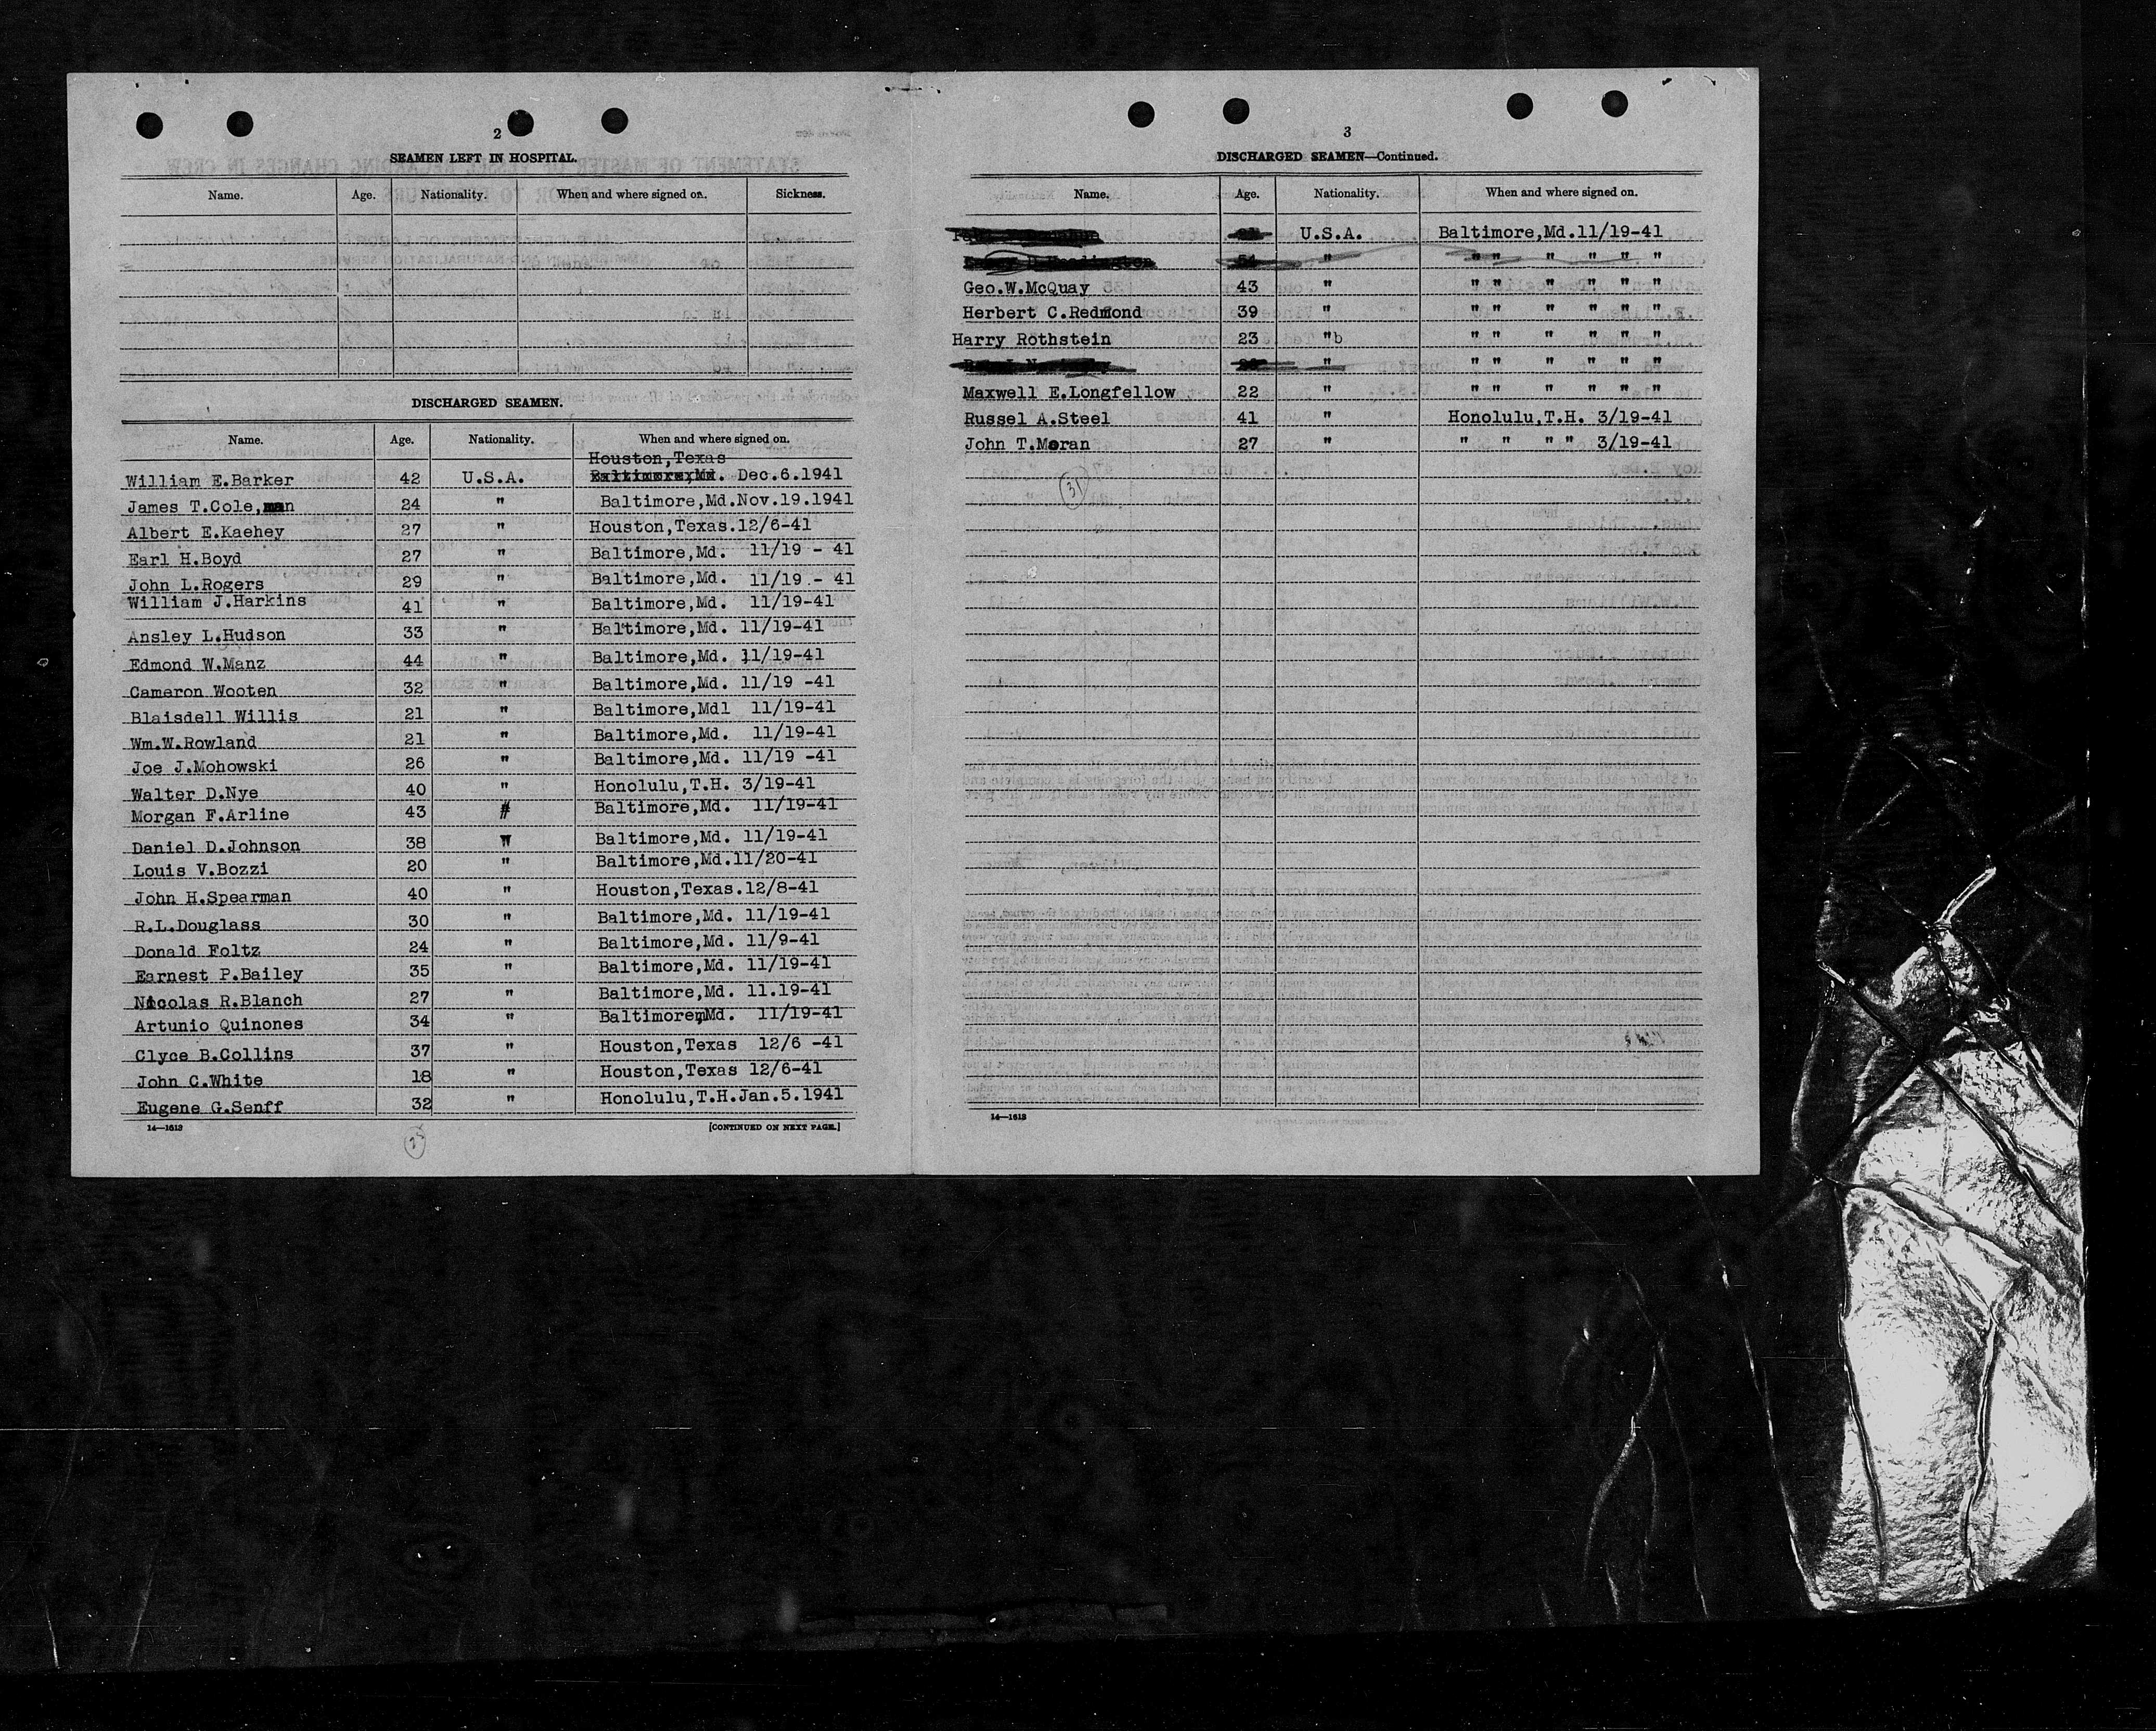 2
SEAMEN LEFT IN HOSPITAL.
Name. Age. Nationality. When and where signed on. Sickness.
DISCHARGED SEAMEN.
Name. Age. Nationality. When and where signed on.
Houston,Texas
William E.Barker 42 U.S.A. Baltimore,Md. Dec.6.1941
James T.Cole,man 24 " Baltimore,Md.Nov.19.1941
Albert E.Kaehey 27 " Houston,Texas.12/6-41
Earl H.Boyd 27 " Baltimore,Md. 11/19 - 41
John L.Rogers 29 " Baltimore,Md. 11/19 - 41
William J.Harkins 41 " Baltimore,Md. 11/19-41
Ansley L.Hudson 33 " Baltimore,Md. 11/19-41
Edmond W.Manz 44 " Baltimore,Md. 11/19-41
Cameron Wooten 32 " Baltimore,Md. 11/19 -41
Blaisdell Willis 21 " Baltimore,Mdl 11/19-41
Wm.W.Rowland 21 " Baltimore,Md. 11/19-41
Joe J.Mohowski 26 " Baltimore,Md. 11/19 -41
Walter D.Nye 40 " Honolulu,T.H. 3/19-41
Morgan F.Arline 43 # Baltimore,Md. 11/19-41
Daniel D.Johnson 38 " Baltimore,Md. 11/19-41
Louis V.Bozzi 20 " Baltimore,Md.11/20-41
John H.Spearman 40 " Houston,Texas.12/8-41
R.L.Douglass 30 " Baltimore,Md. 11/19-41
Donald Foltz 24 " Baltimore,Md. 11/9-41
Earnest P.Bailey 35 " Baltimore,Md. 11/19-41
Nicolas R.Blanch 27 " Baltimore,Md. 11.19-41
Artunio Quinones 34 " BaltimoremMd. 11/19-41
Clyce B.Collins 37 " Houston,Texas 12/6 -41
John C.White 18 " Houston,Texas 12/6-41
Eugene G.Senff 32 " Honolulu,T.H.Jan.5.1941
14—1613 [CONTINUED ON NEXT PAGE.]
25
3
DISCHARGED SEAMEN—Continued.
Name. Age. Nationality. When and where signed on.
U.S.A. Baltimore,Md.11/19-41
" " " " " " "
Geo.W.McQuay 43 " " " " " " "
Herbert C.Redmond 39 " " " " " " "
Harry Rothstein 23 "b " " " " " "
" " " " " " "
Maxwell E.Longfellow 22 " " " " " " "
Russel A.Steel 41 " Honolulu,T.H. 3/19-41
John T.Moran 27 " " " " " 3/19-41
31
14—1613